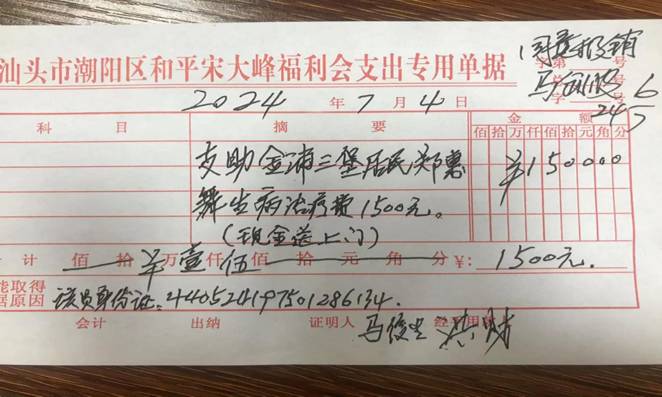 汕头市潮阳区和平宋大峰福利会支出专用单据
同意报销
字第 号
字 号
245
6
2024 年 7 月 4 日
科 目 摘 要 金 额
佰拾万仟佰拾元角分
支助金浦三堡居民郑惠 ¥150000
舞生病治疗费1500元。
(现金送上门)
计 佰 拾 万 壹 仟 伍 佰 拾 元 角 分 ¥: 1500元.
能取得
据原因 该员身份证:440524197501286134.
会计 出纳 证明人 马俊 经手